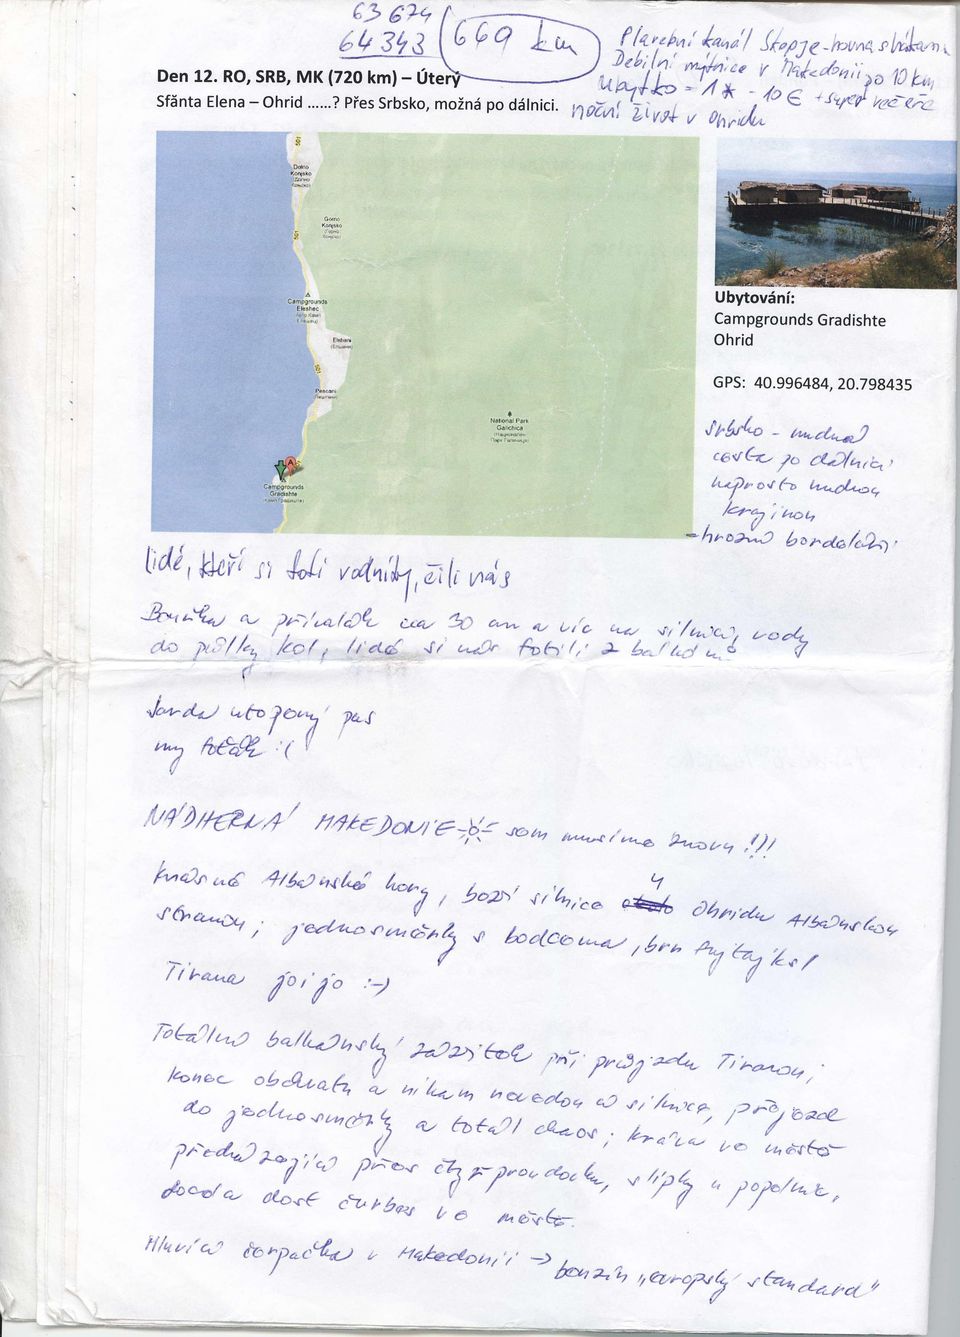 63 674
64 343
669 km
Plavební kanál Skopje - hovna s hádkama
Debilní mýtnice v Makedonii po 10 km
Ubytko = 1* - 10 € + super večeře
noční život v Ohridu
Den 12. RO, SRB, MK (720 km) – Úterý
Sfănta Elena – Ohrid ......? Přes Srbsko, možná po dálnici.
501
Dolno
Konjsko
Gorno
Konjsko
501
Campgrounds
Eleshec
Elshani
501
Pescani
National Park
Galichica
A
Campgrounds
Gradishte
Ubytování:
Campgrounds Gradishte
Ohrid
GPS: 40.996484, 20.798435
Srbsko - nudná
cesta po dálnici
neprosto nudnou
krajinou
- hrozný
lidé, kteří si fotí vodníky, čili nás
Bouřka a přívalák na 30 cm a víc na silnici, vody
do půlky kol, lidé si nás fotili z balkónů
Jarda utopený pas
my foťák :(
NÁDHERNÁ MAKEDONIE sem musíme znovu !!!
krásné Albánské hory, boží silnice u Ohridu Albánskou
stranou; jednosměrky s bodcema, brn
Tirana joi jo :-)
Totální balkánský zážitek při průjezdu Tiranou;
konec obchvatu a nikam nevedoucí silnice, přejezd
do jednosměrky a totál chaos; kráva ve městě
přecházející přes čtyřproudovku, slípky u popelnic,
docela dost čurbes ve městě.
Mluvící čerpačka v Makedonii → benzín "evropský standard"